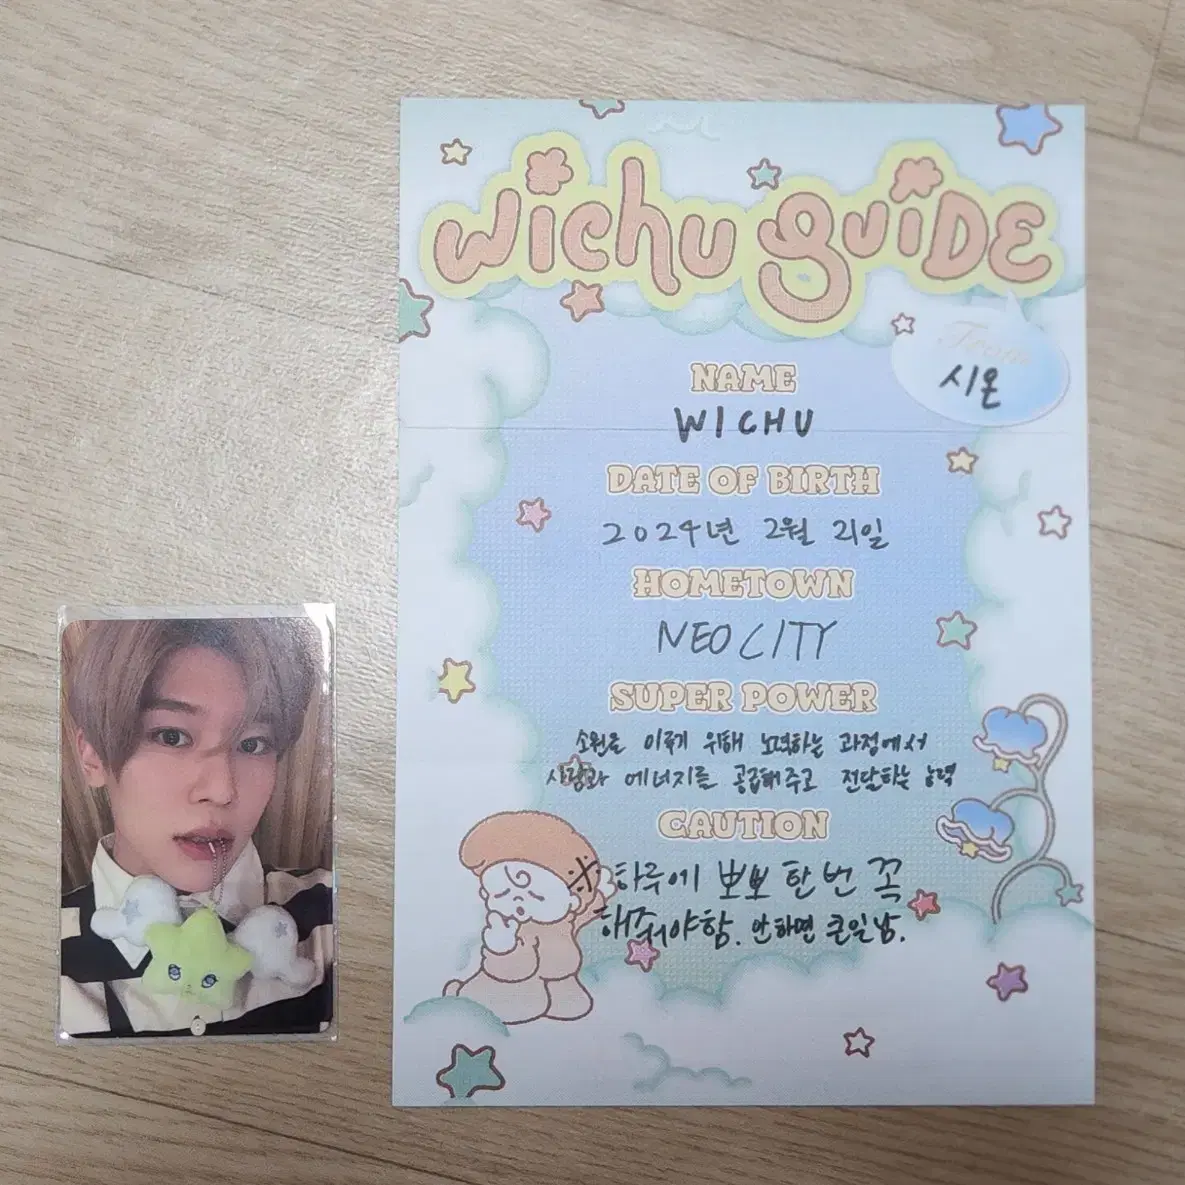 wichu guide
From
시온
NAME
WICHU
DATE OF BIRTH
2024년 2월 21일
HOMETOWN
NEO CITY
SUPER POWER
소원을 이루기 위해 노력하는 과정에서
사랑과 에너지를 공급해주고 전달하는 능력
CAUTION
※ 하루에 뽀뽀 한 번 꼭
해줘야함. 안하면 큰일남.